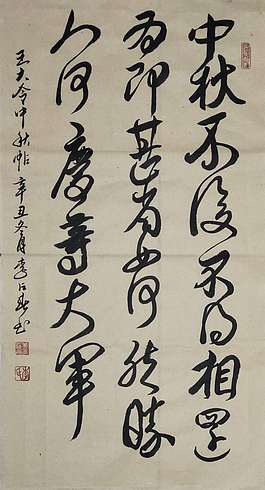 中秋不復不得相還
為即甚省如何然勝
人何慶等大軍
王大令中秋帖 辛丑冬月李书